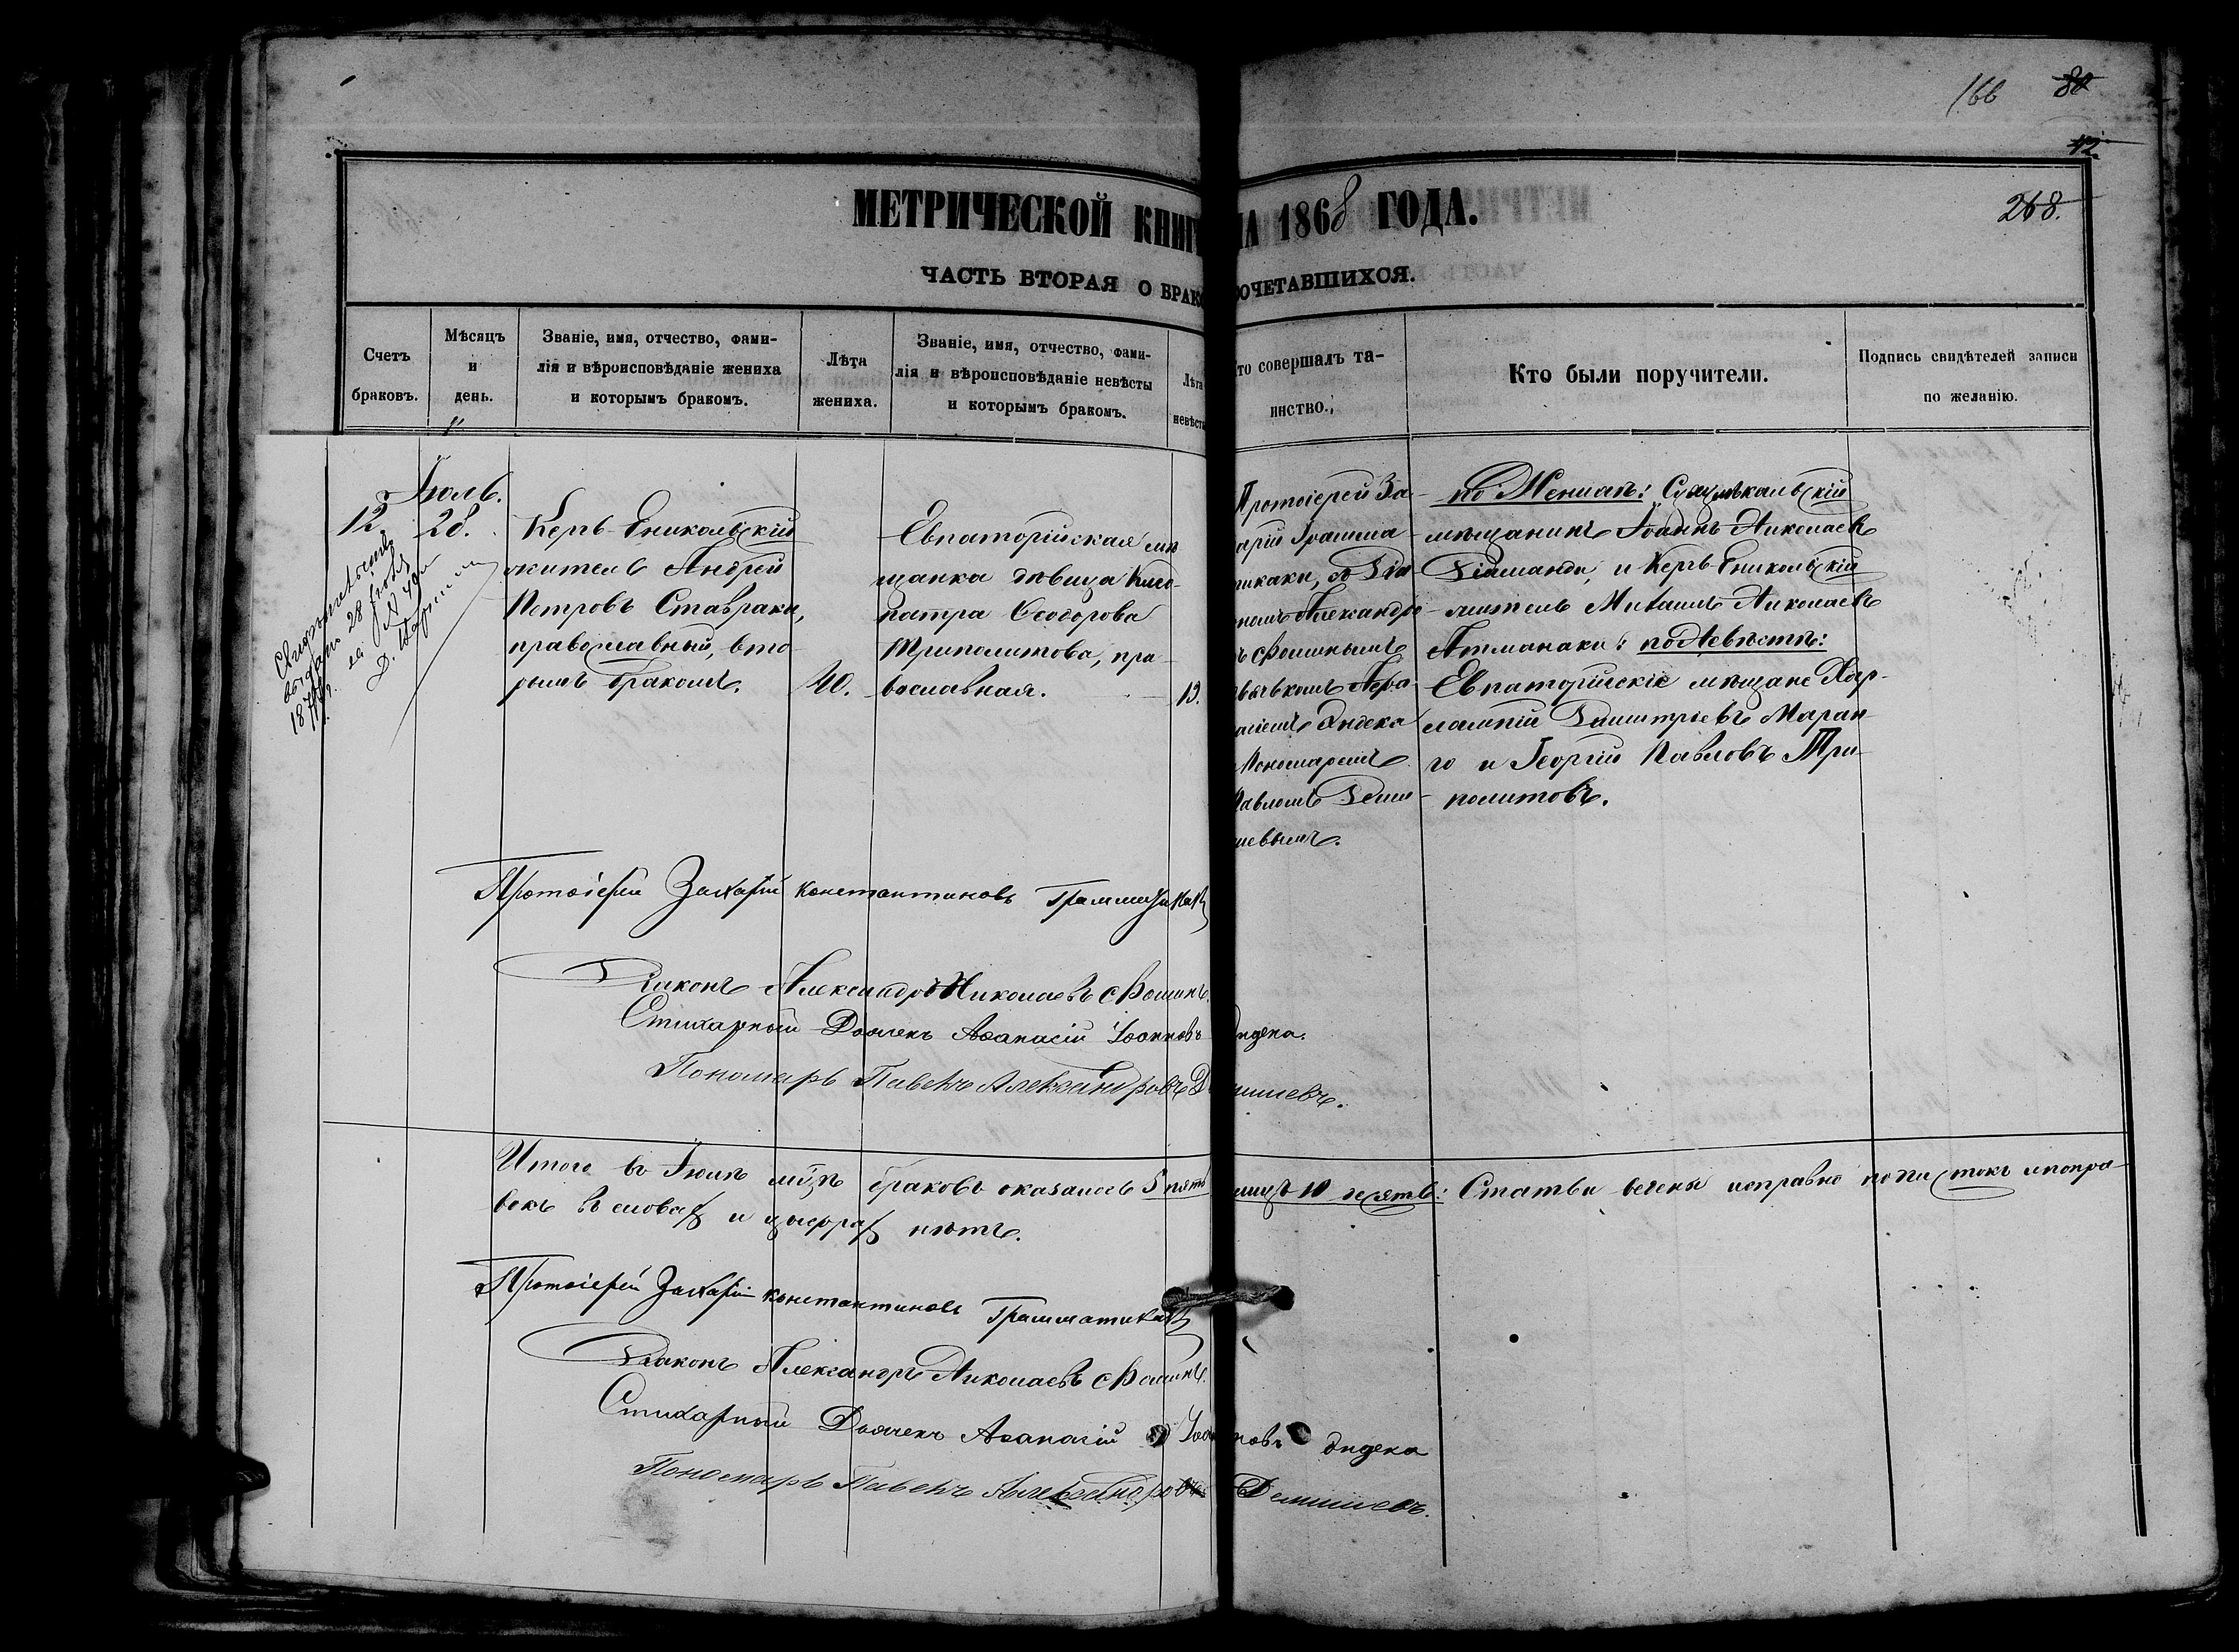 166 80
12
268.
МЕТРИЧЕСКОЙ КНИГ НА 1868 ГОДА.
ЧАСТЬ ВТОРАЯ О БРАКОСОЧЕТАВШИХСЯ.
Счетъ браковъ.
Мѣсяцъ и день.
Званіе, имя, отчество, фами-
лія и вѣроисповѣданіе жениха
и которымъ бракомъ.
Лѣта жениха.
Званіе, имя, отчество, фами-
лія и вѣроисповѣданіе невѣсты
и которымъ бракомъ.
Лѣта невѣсты
то совершалъ та-
инство.
Кто были поручители.
Подпись свидѣтелей записи
по желанію.
Іюль.
12. 28.
Свидѣтельство
выдано 28 Іюля
за № 40
Керчь-Еникольскій
житель Андрей
Петровъ Ставраки,
православный, вто-
рымъ бракомъ.
40.
Евпаторійская мѣ
щанка дѣвица Клео-
патра Ѳеодорова
Триполитова, пра-
вославная.
19.
Протоіерей За-
харій Грамма-
тикаки, съ Діа-
кономъ Александро-
мъ Фоминымъ
Дьячкомъ Аѳа-
насіемъ Дидека
Пономаремъ
Павломъ Деми-
шевымъ.
по Женихѣ:
мѣщанинъ Іоаннъ Николаевъ
Діаманди, и Керчь-Еникольскій
житель Михаилъ Николаевъ
Атманаки: по Невѣстѣ:
Евпаторійскіе мѣщане Хар-
лампій Димитріевъ Маран-
го и Георгій Павловъ Три-
политовъ.
Протоіерей Захарій Константиновъ Грамматикаки
Діаконъ Александръ Николаевъ Фоминъ.
Стихарный Дьячекъ Аѳанасій Іоанновъ Дидека.
Пономарь Павелъ Александровъ Демишевъ.
Итого въ Іюлѣ мцѣ браковъ оказалось 5 пять лицъ 10 десять: Статьи ведены исправно подчистокъ и попра-
вокъ въ словах и цыфрах нѣтъ.
Протоіерей Захарій Константиновъ Грамматикаки
Діаконъ Александръ Николаевъ Фоминъ.
Стихарный Дьячекъ Аѳанасій Іоанновъ Дидека
Пономарь Павелъ Александровъ Демишевъ.